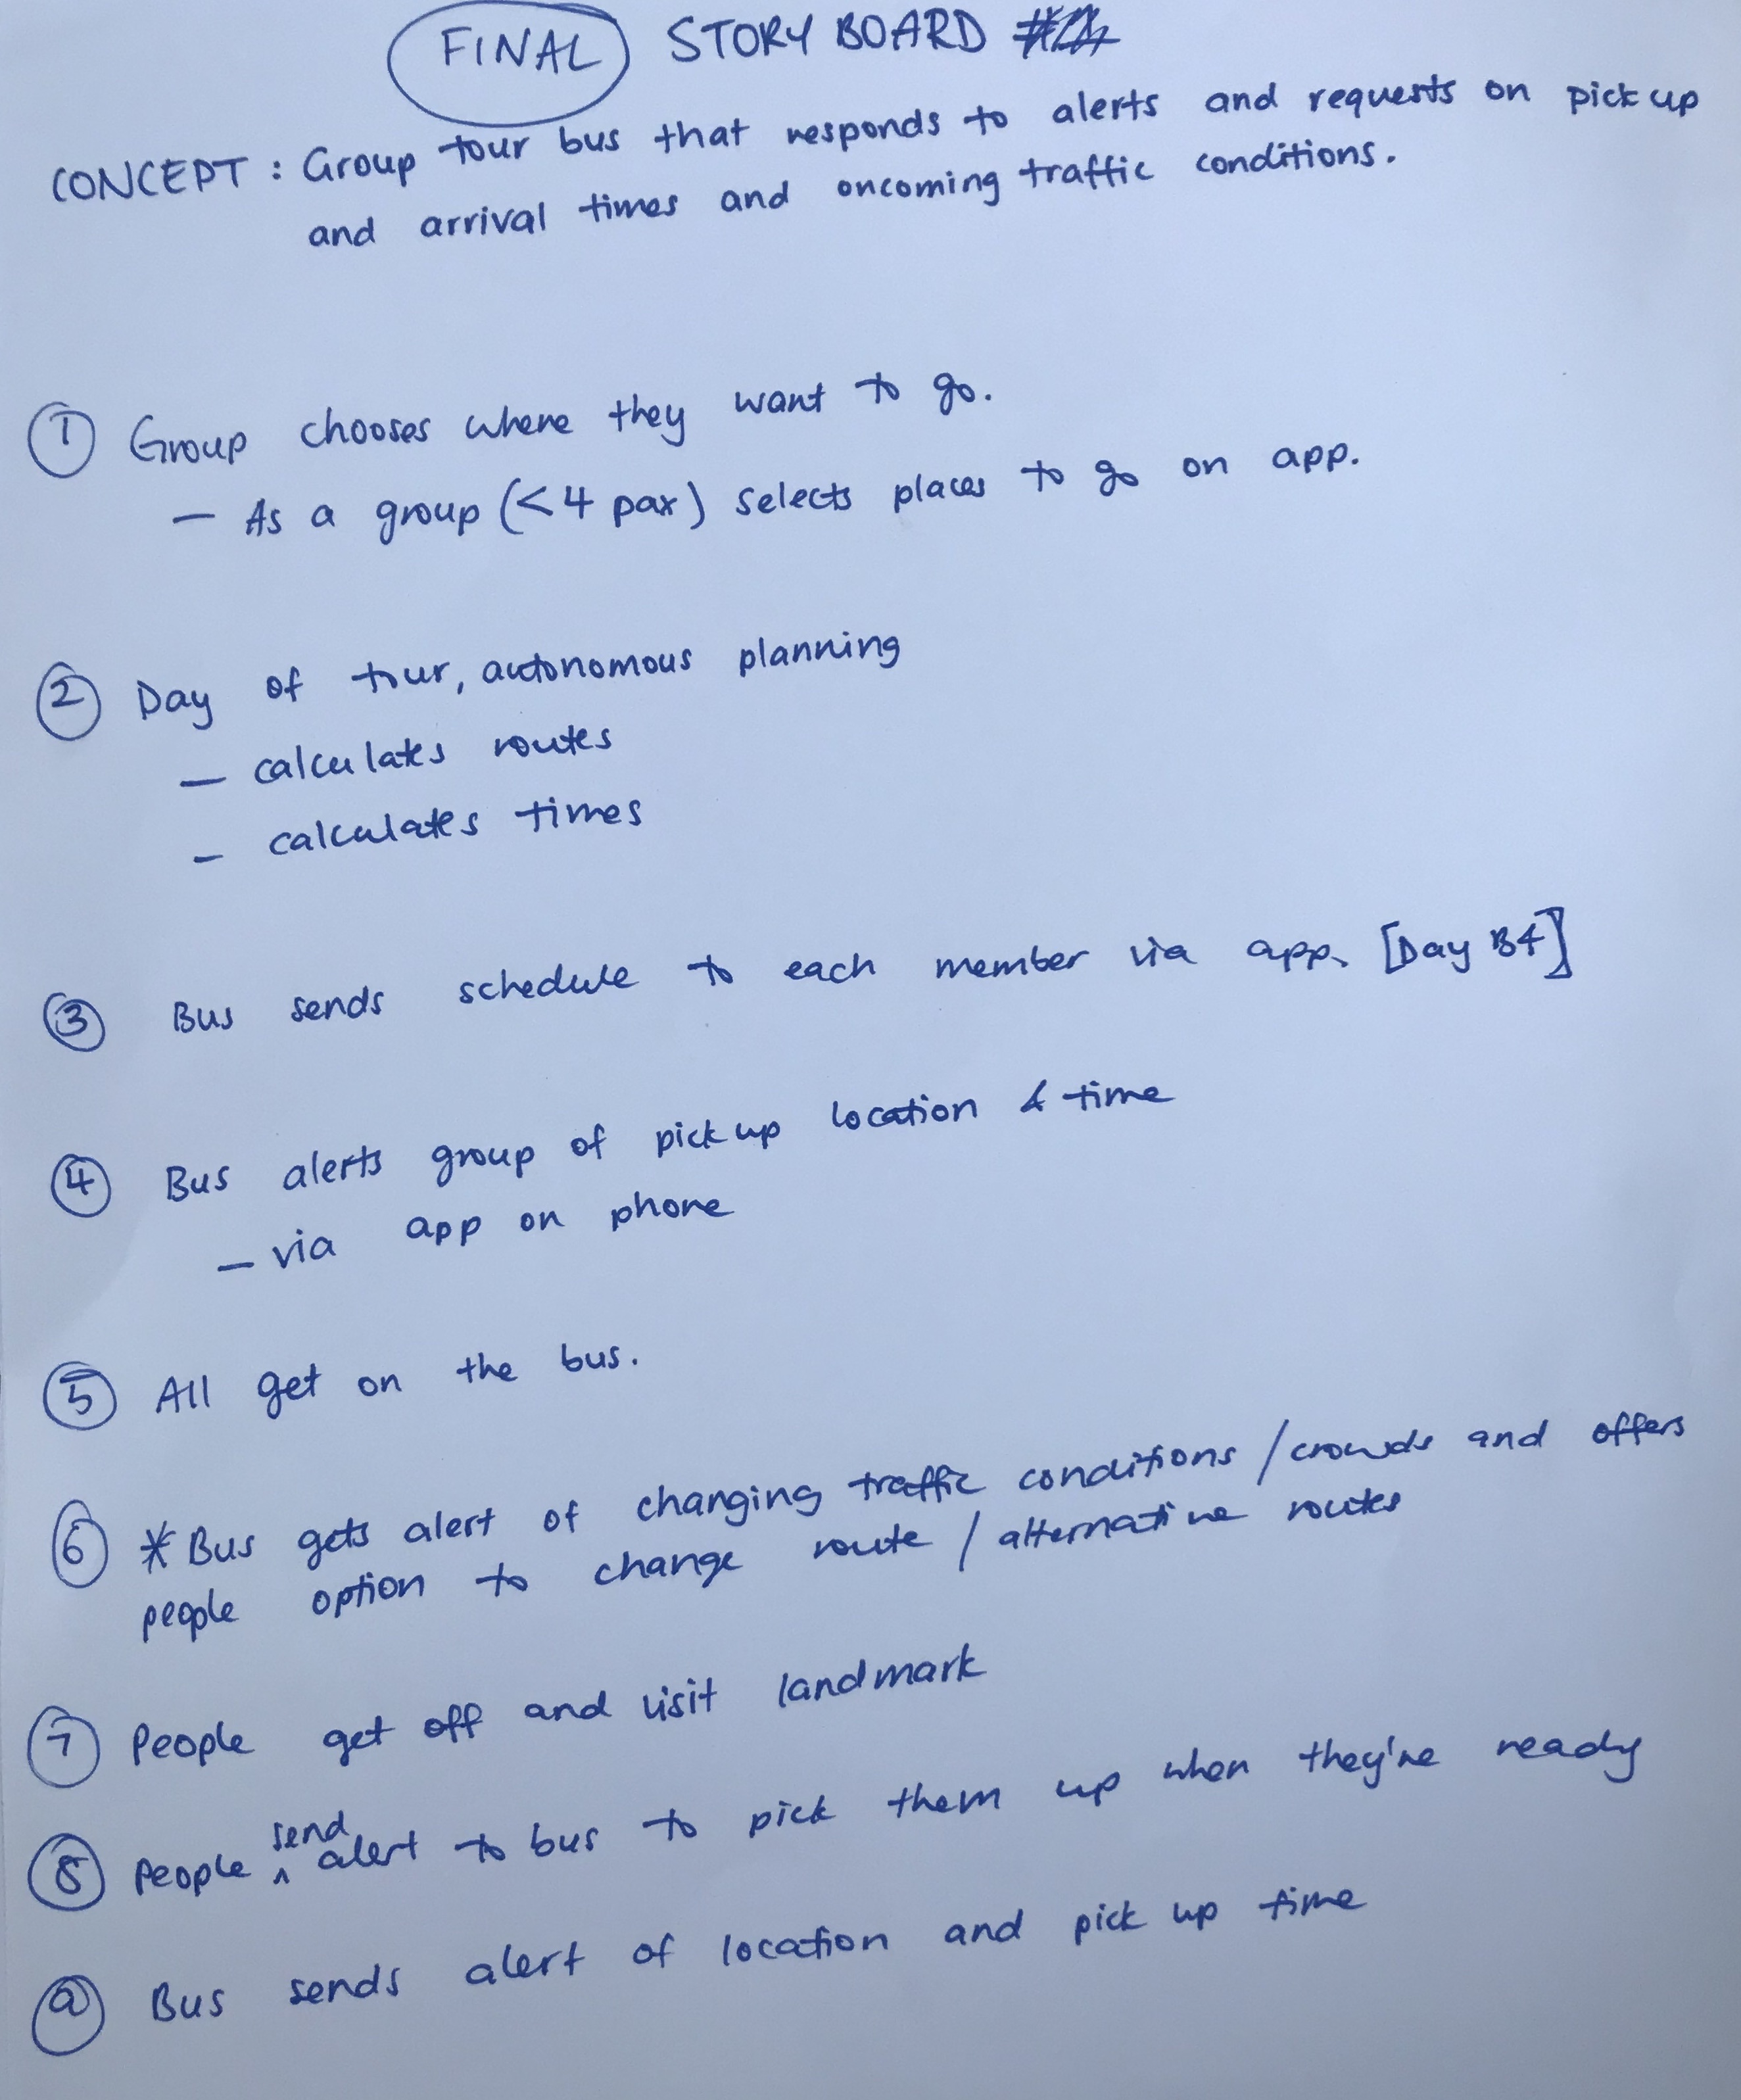 FINAL STORY BOARD
CONCEPT : Group tour bus that responds to alerts and requests on pick up
and arrival times and oncoming traffic conditions.
1 Group chooses where they want to go.
— As a group (<4 pax) selects places to go on app.
2 Day of tour, autonomous planning
— calculates routes
— calculates times
3 Bus sends schedule to each member via app. [Day B4]
4 Bus alerts group of pick up location & time
— via app on phone
5 All get on the bus.
6 *Bus gets alert of changing traffic conditions / crowds and offers
people option to change route / alternative routes
7 People get off and visit landmark
8 People send alert to bus to pick them up when they're ready
9 Bus sends alert of location and pick up time